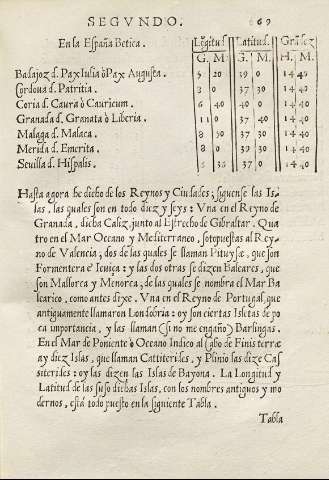 SEGVNDO. 69
En la España Betica. Lõgitud. Latitud. Grãdez
G. M. G. M. H. M.
Badajoz d. Pax Iulia ò Pax Augusta. 5 20 39 0 14 40
Cordova d. Patritia. 8 0 37 30 14 40
Coria d. Caura ò Cauricum. 6 40 40 0 14 40
Granada d. Granata ò Liberia. 11 0 37 0 14 40
Malaga d. Malaca. 8 50 37 30 14 40
Merida d. Emerita. 8 0 39 30 14 40
Sevilla d. Hispalis. 37 0 14 40
Hasta agora he dicho de los Reynos y Ciudades; siguense las Is-
las, las quales son en todo diez y seys: Vna en el Reyno de
Granada, dicha Caliz, junto al Estrecho de Gibraltar. Qua
tro en el Mar Oceano y Mediterraneo, sotopuestas al Rey-
no de Valencia; dos de las quales se llaman Pituysæ, que son
Formentera è Ieuiça: y las dos otras se dizen Baleares, que
son Mallorca y Menorca, de las quales se nombra el Mar Ba
learico, como antes dixe. Vna en el Reyno de Portugal, que
antiguamente llamaron Londobria: oy son ciertas Isletas de po
ca importancia, y las llaman (si no me engaño) Barlingas.
En el Mar de Poniente ò Oceano Indico al Cabo de Finis terræ
ay diez Islas, que llaman Cattiterides, y Plinio las dize Cas
siterides: oy las dizen las Islas de Bayona. La Longitud y
Latitud de las suso dichas Islas, con los nombres antiguos y mo
dernos, està todo puesto en la siguiente Tabla.
Tabla